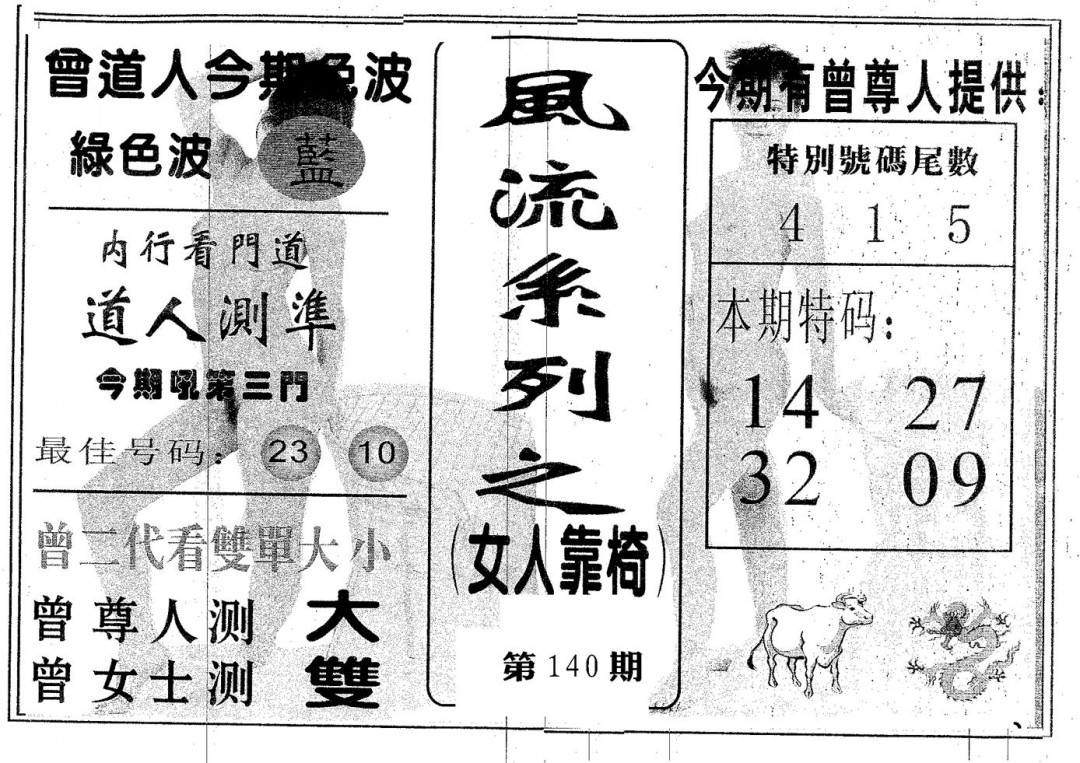 曾道人今期色波
綠色波 藍
内行看門道
道人測準
今期吼第三門
最佳号码: 23 10
曾二代看雙單大小
曾尊人测 大
曾女士测 雙
風流系列之
(女人靠椅)
第140期
今期有曾尊人提供:
特别號碼尾數
4 1 5
本期特码:
14 27
32 09